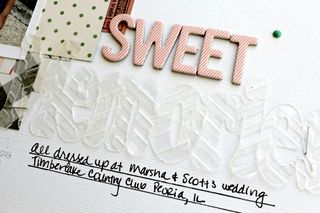 SWEET
memories
all dressed up at Marsha & Scott's wedding
Timberlake Country Club Peoria, IL